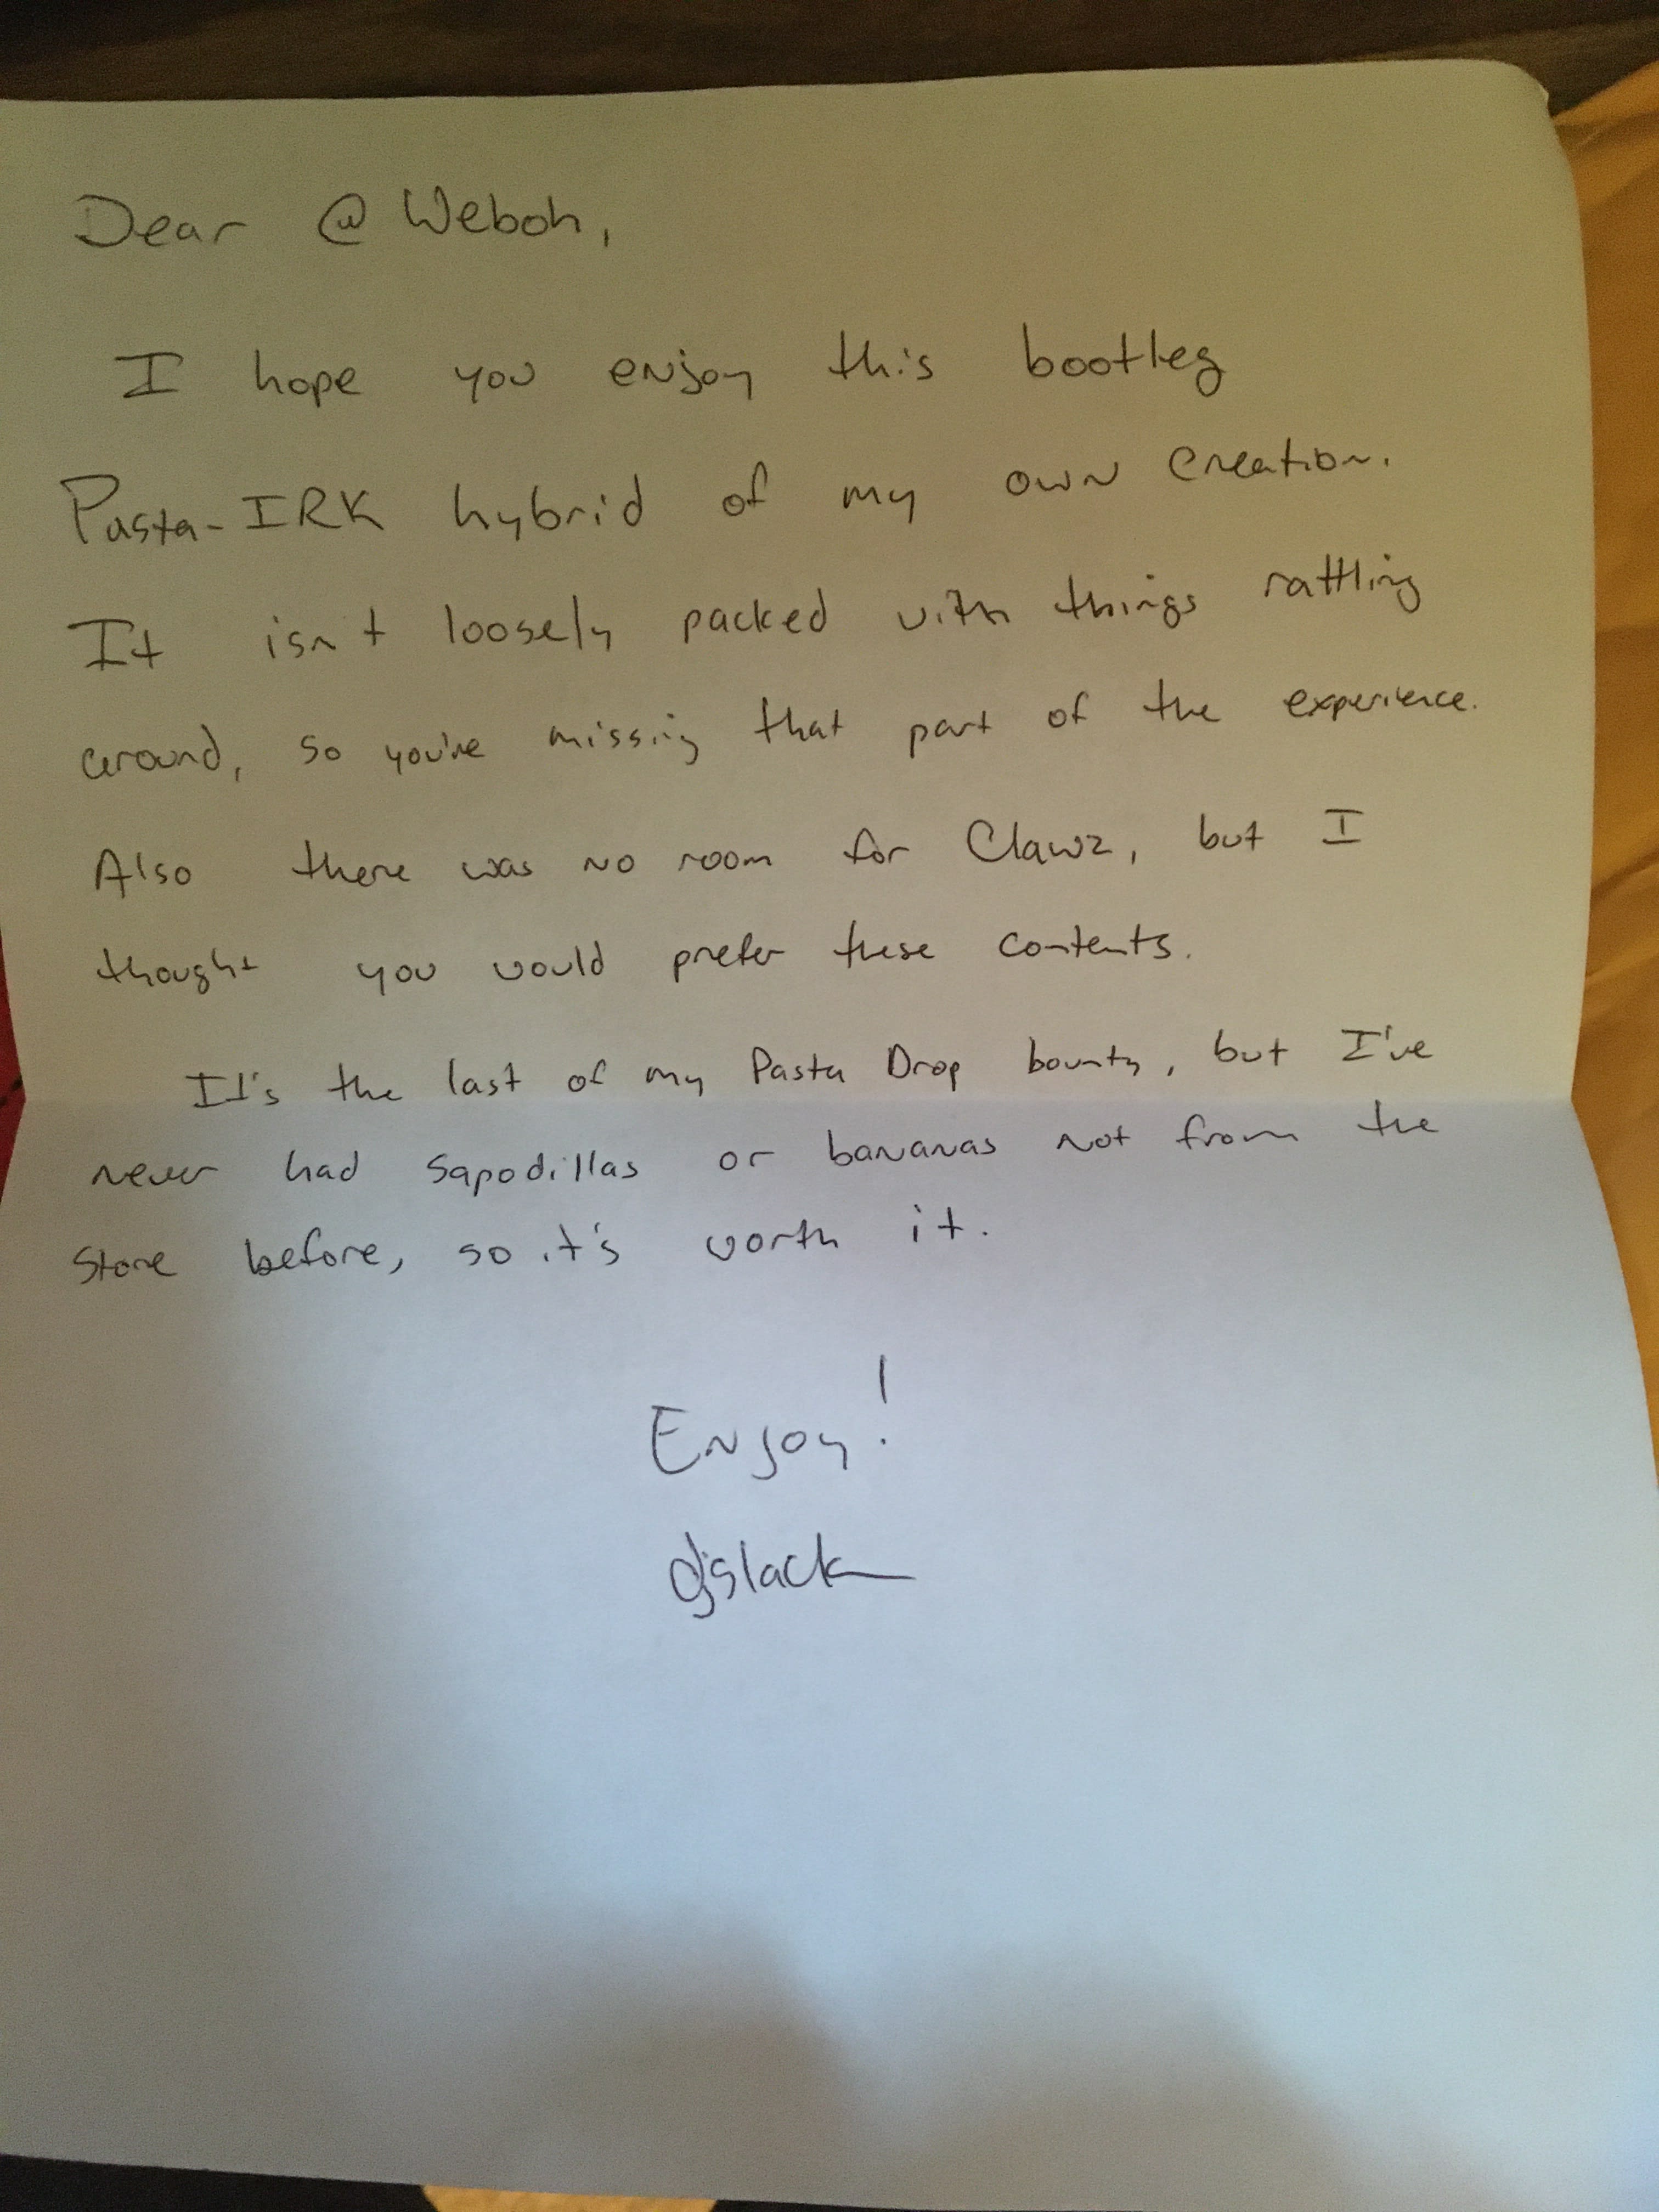 Dear @Weboh,
I hope you enjoy this bootleg
Pasta-IRK hybrid of my own creation.
It isn't loosely packed with things rattling
around, so you're missing that part of the experience.
Also there was no room for Clawz, but I
thought you would prefer these contents.
It's the last of my Pasta Drop bounty, but I've
never had sapodillas or bananas not from the
store before, so it's worth it.
Enjoy!
djslack